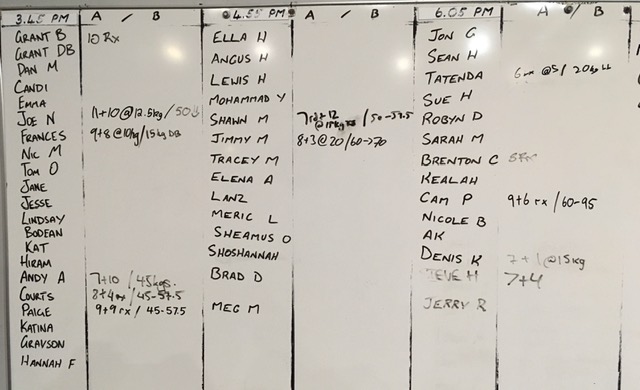 3.45 PM A / B
GRANT B 10 Rx
GRANT DB
DAN M
CANDI
EMMA
JOE N 11+10@12.5kg/50
FRANCES 9+8@10kg/15kg DB
NIC M
TOM O
JANE
JESSE
LINDSAY
BODEAN
KAT
HIRAM
ANDY A 7+10 / 45kgs.
COURTS 8+4rx / 45-57.5
PAIGE 9+9 rx / 45-57.5
KATINA
GRAYSON
HANNAH F
4.55 PM A / B
ELLA H
ANGUS H
LEWIS H
MOHAMMAD Y
SHAWN M 12 @15kg / 50-57.5
JIMMY M 8+3@20/60->70
TRACEY M
ELENA A
LANZ
MERIC L
SHEAMUS O
SHOSHANNAH
BRAD D
MEG M
6.05 PM A / B
JON G
SEAN H
TATENDA @5/20kg
SUE H
ROBYN D
SARAH M
BRENTON C
KEALAH
CAM P 9+6 rx / 60-95
NICOLE B
AK
DENIS K 7+1@15kg
TEVE H 7+4
JERRY R